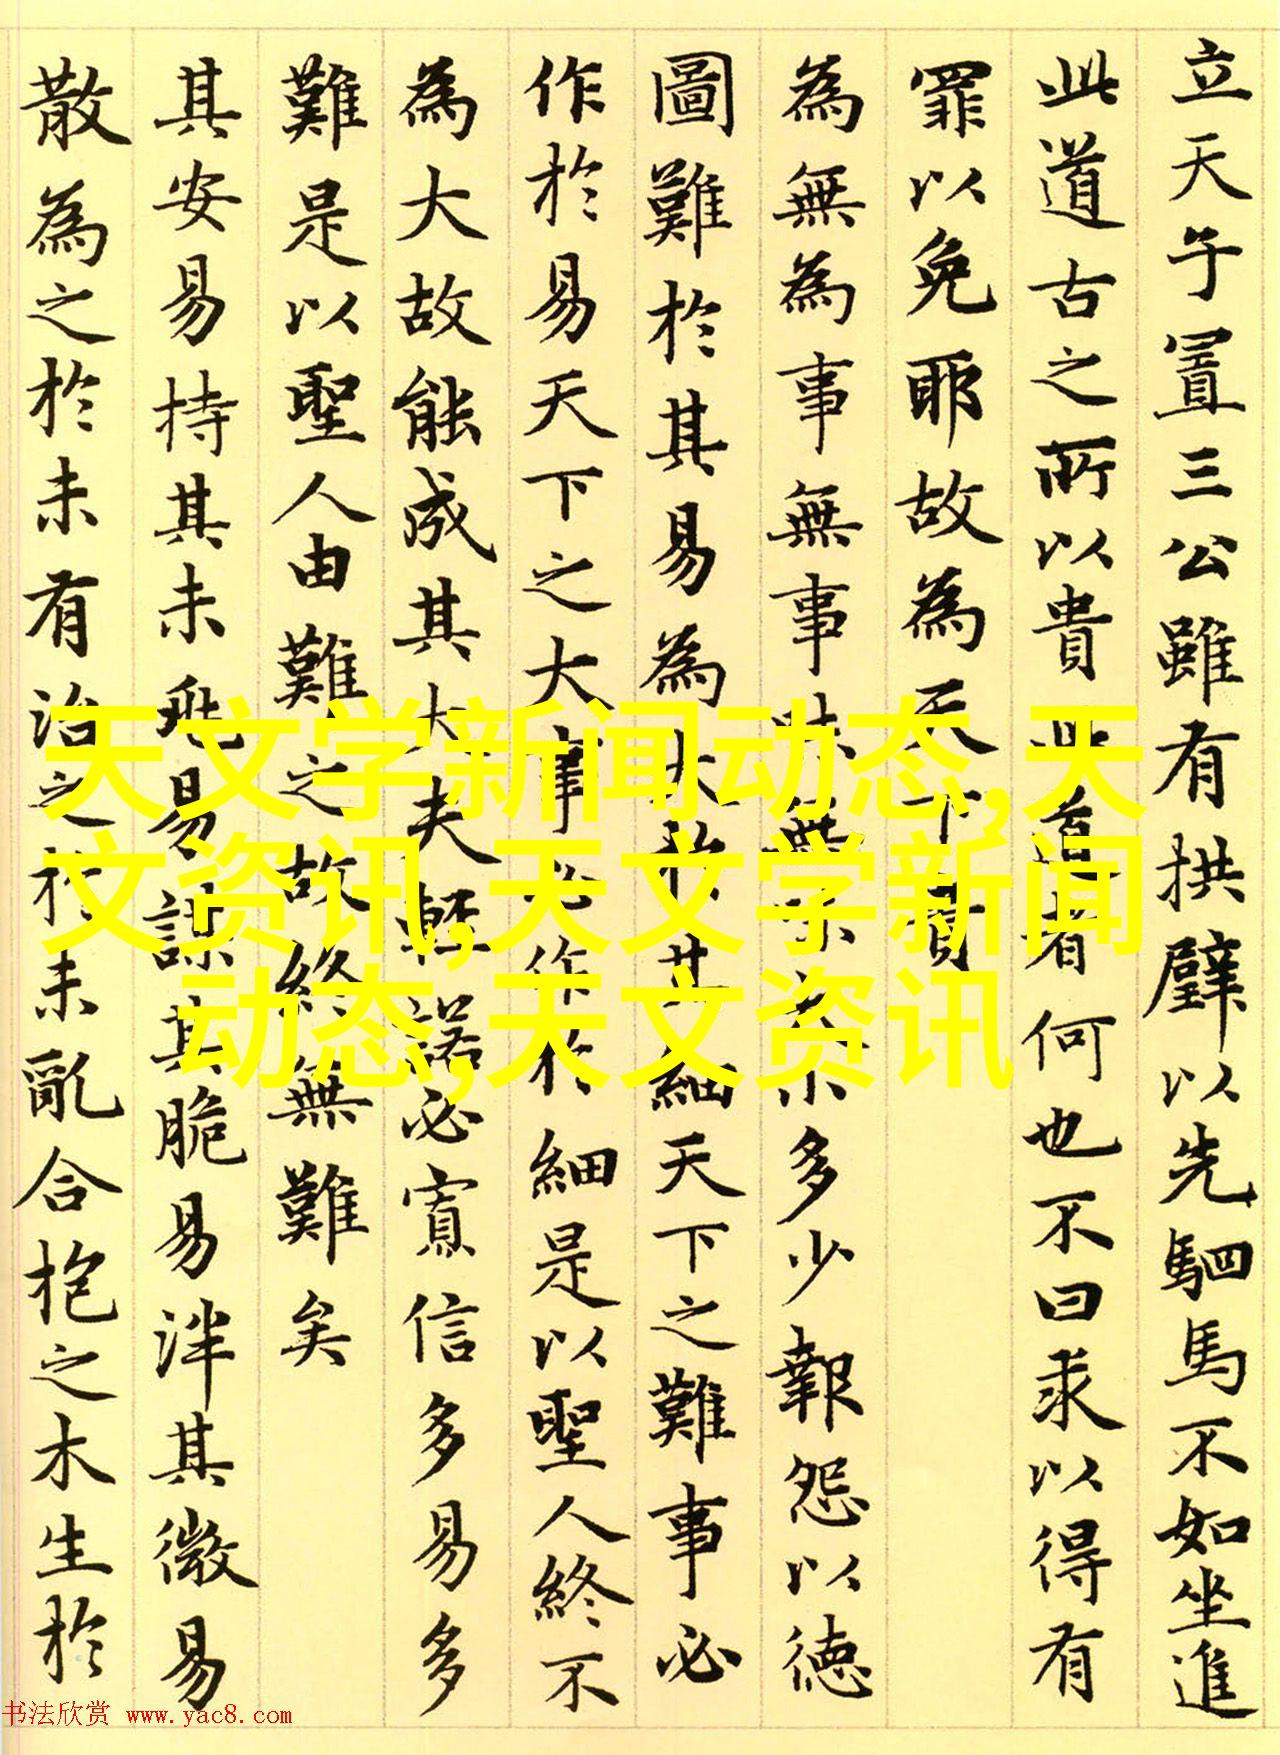 立天子置三公雖有拱璧以先駟馬不如坐進
此道古之所以貴此道者何也不曰求以得有
罪以免耶故為天下貴
為無為事無事味無味大小多少報怨以德
圖難於其易為大於其細天下之難事必
作於易天下之大事必作於細是以聖人終不
為大故能成其大夫輕諾必寡信多易多
難是以聖人由難之故終無難矣
其安易持其未兆易謀其脆易泮其微易
散為之於未有治之於未亂合抱之木生於
天文学新闻动态,天
文资讯,天文学新闻
动态,天文资讯
书法欣赏 www.yac8.com